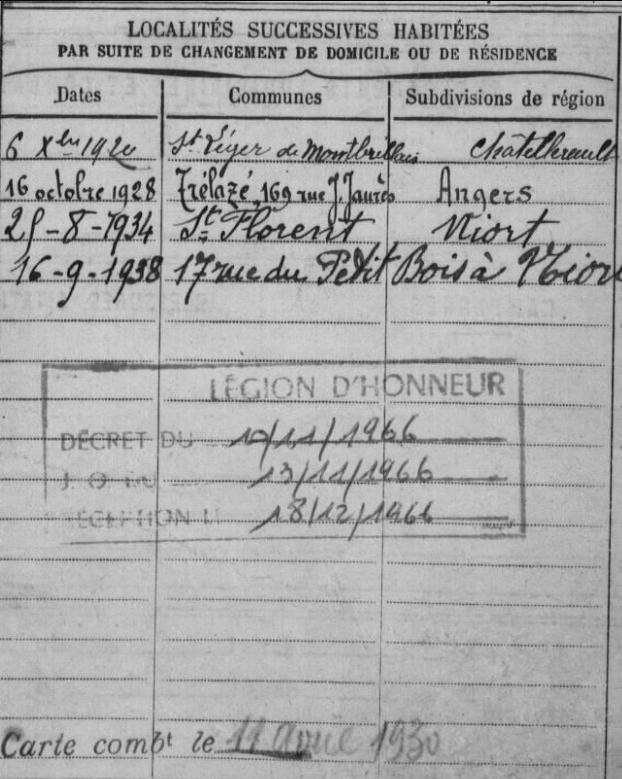 LOCALITÉS SUCCESSIVES HABITÉES
PAR SUITE DE CHANGEMENT DE DOMICILE OU DE RÉSIDENCE
Dates Communes Subdivisions de région
6 Xbre 1920 St Léger de Montbrillais Chatellerault
16 octobre 1928 Trélazé, 169 rue J. Jaurès Angers
25-8-1934 St Florent Niort
16-9-1938 17 rue du Petit Bois à Niort
LÉGION D'HONNEUR
DÉCRET DU 10/11/1966
J. O. DU 13/11/1966
RÉCEPTION LE 18/12/1966
Carte combt le 11 avril 1930